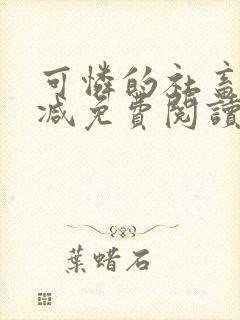 可憐的社畜
減免費閱讀
葉蜡石